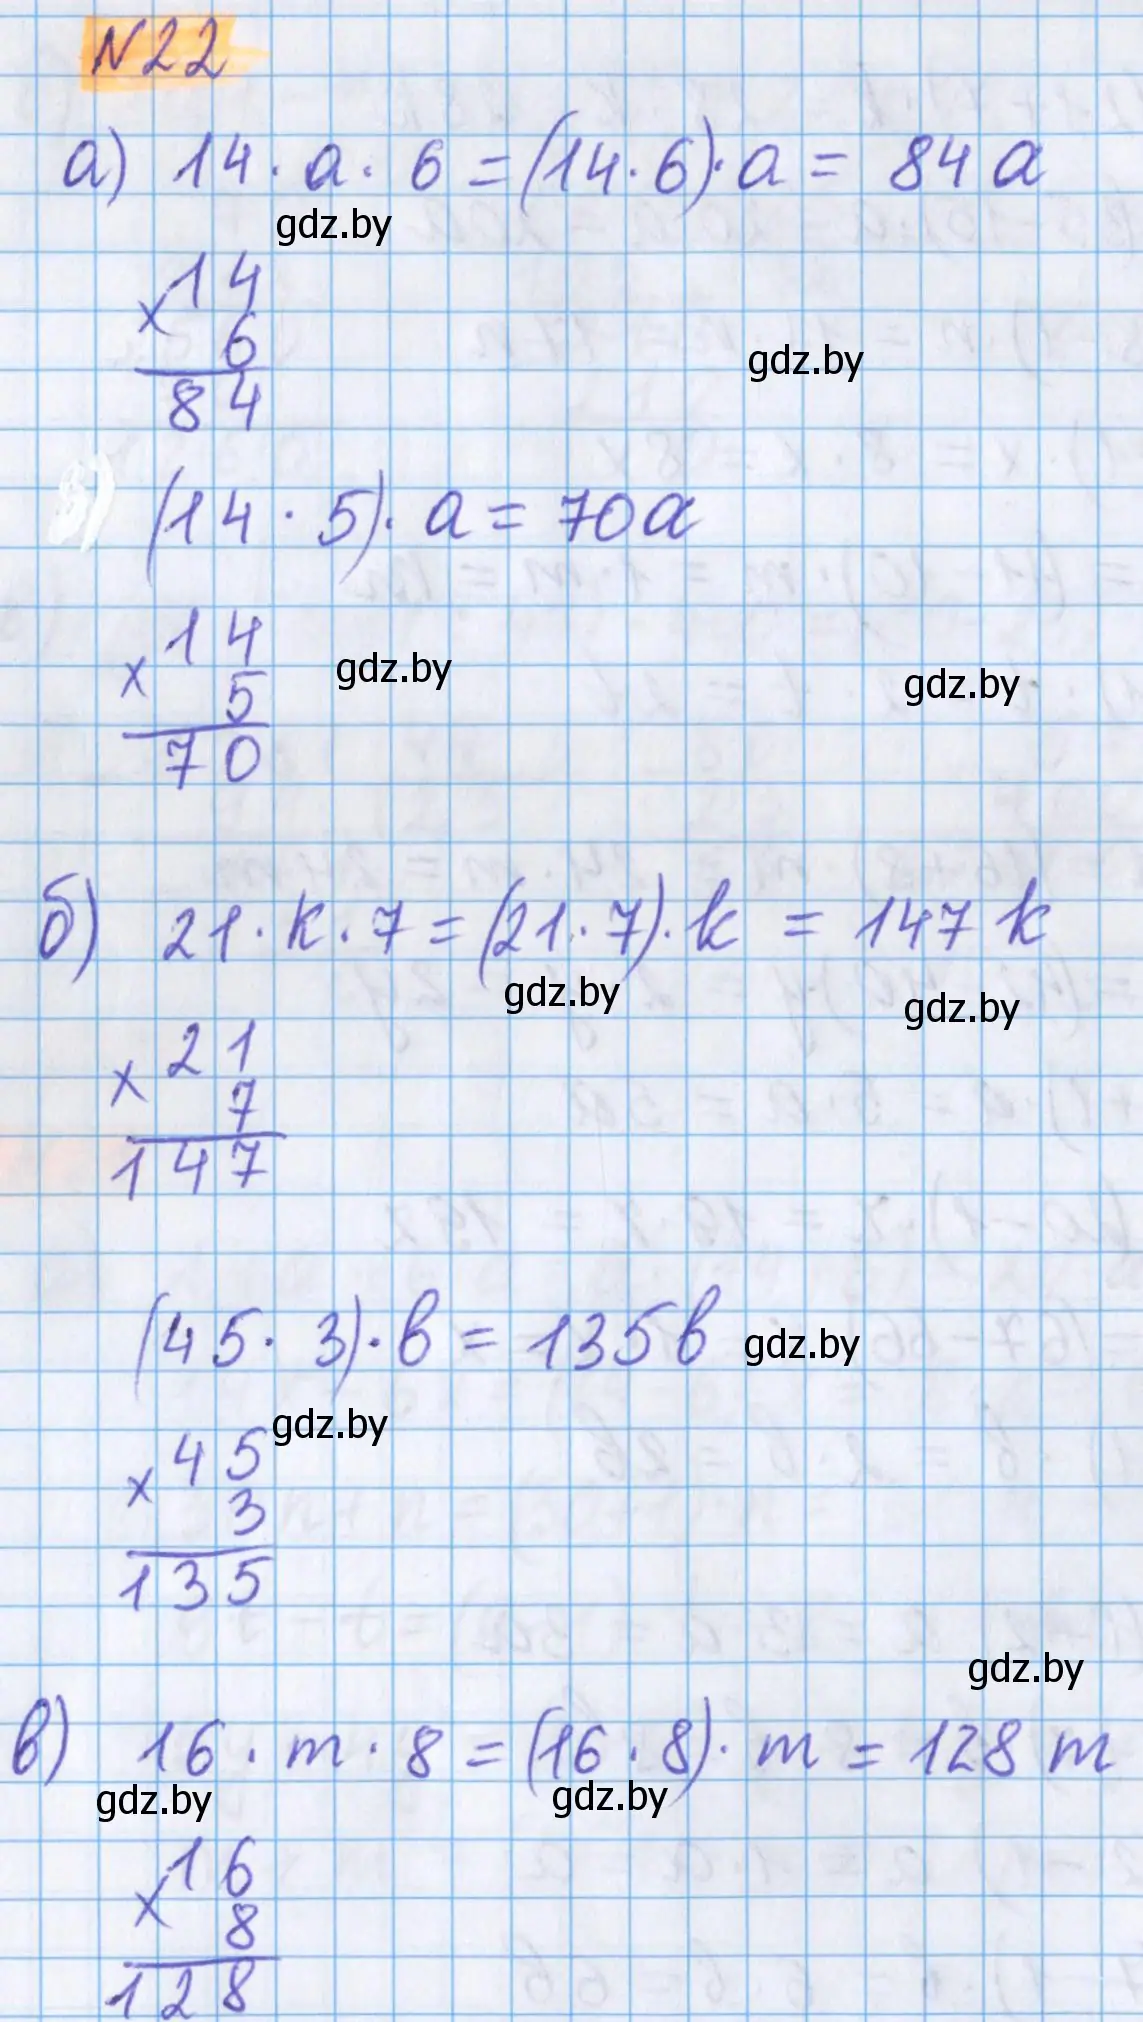 N22
а) 14 · a · 6 = (14 · 6) · a = 84 a
gdz.by
× 14
6
gdz.by
84
(14 · 5) · a = 70a
× 14
gdz.by
5
gdz.by
70
б) 21 · k · 7 = (21 · 7) · k = 147 k
gdz.by
gdz.by
× 21
7
147
(45 · 3) · b = 135b
gdz.by
gdz.by
× 45
3
135
gdz.by
в) 16 · m · 8 = (16 · 8) · m = 128 m
gdz.by
gdz.by
× 16
8
128